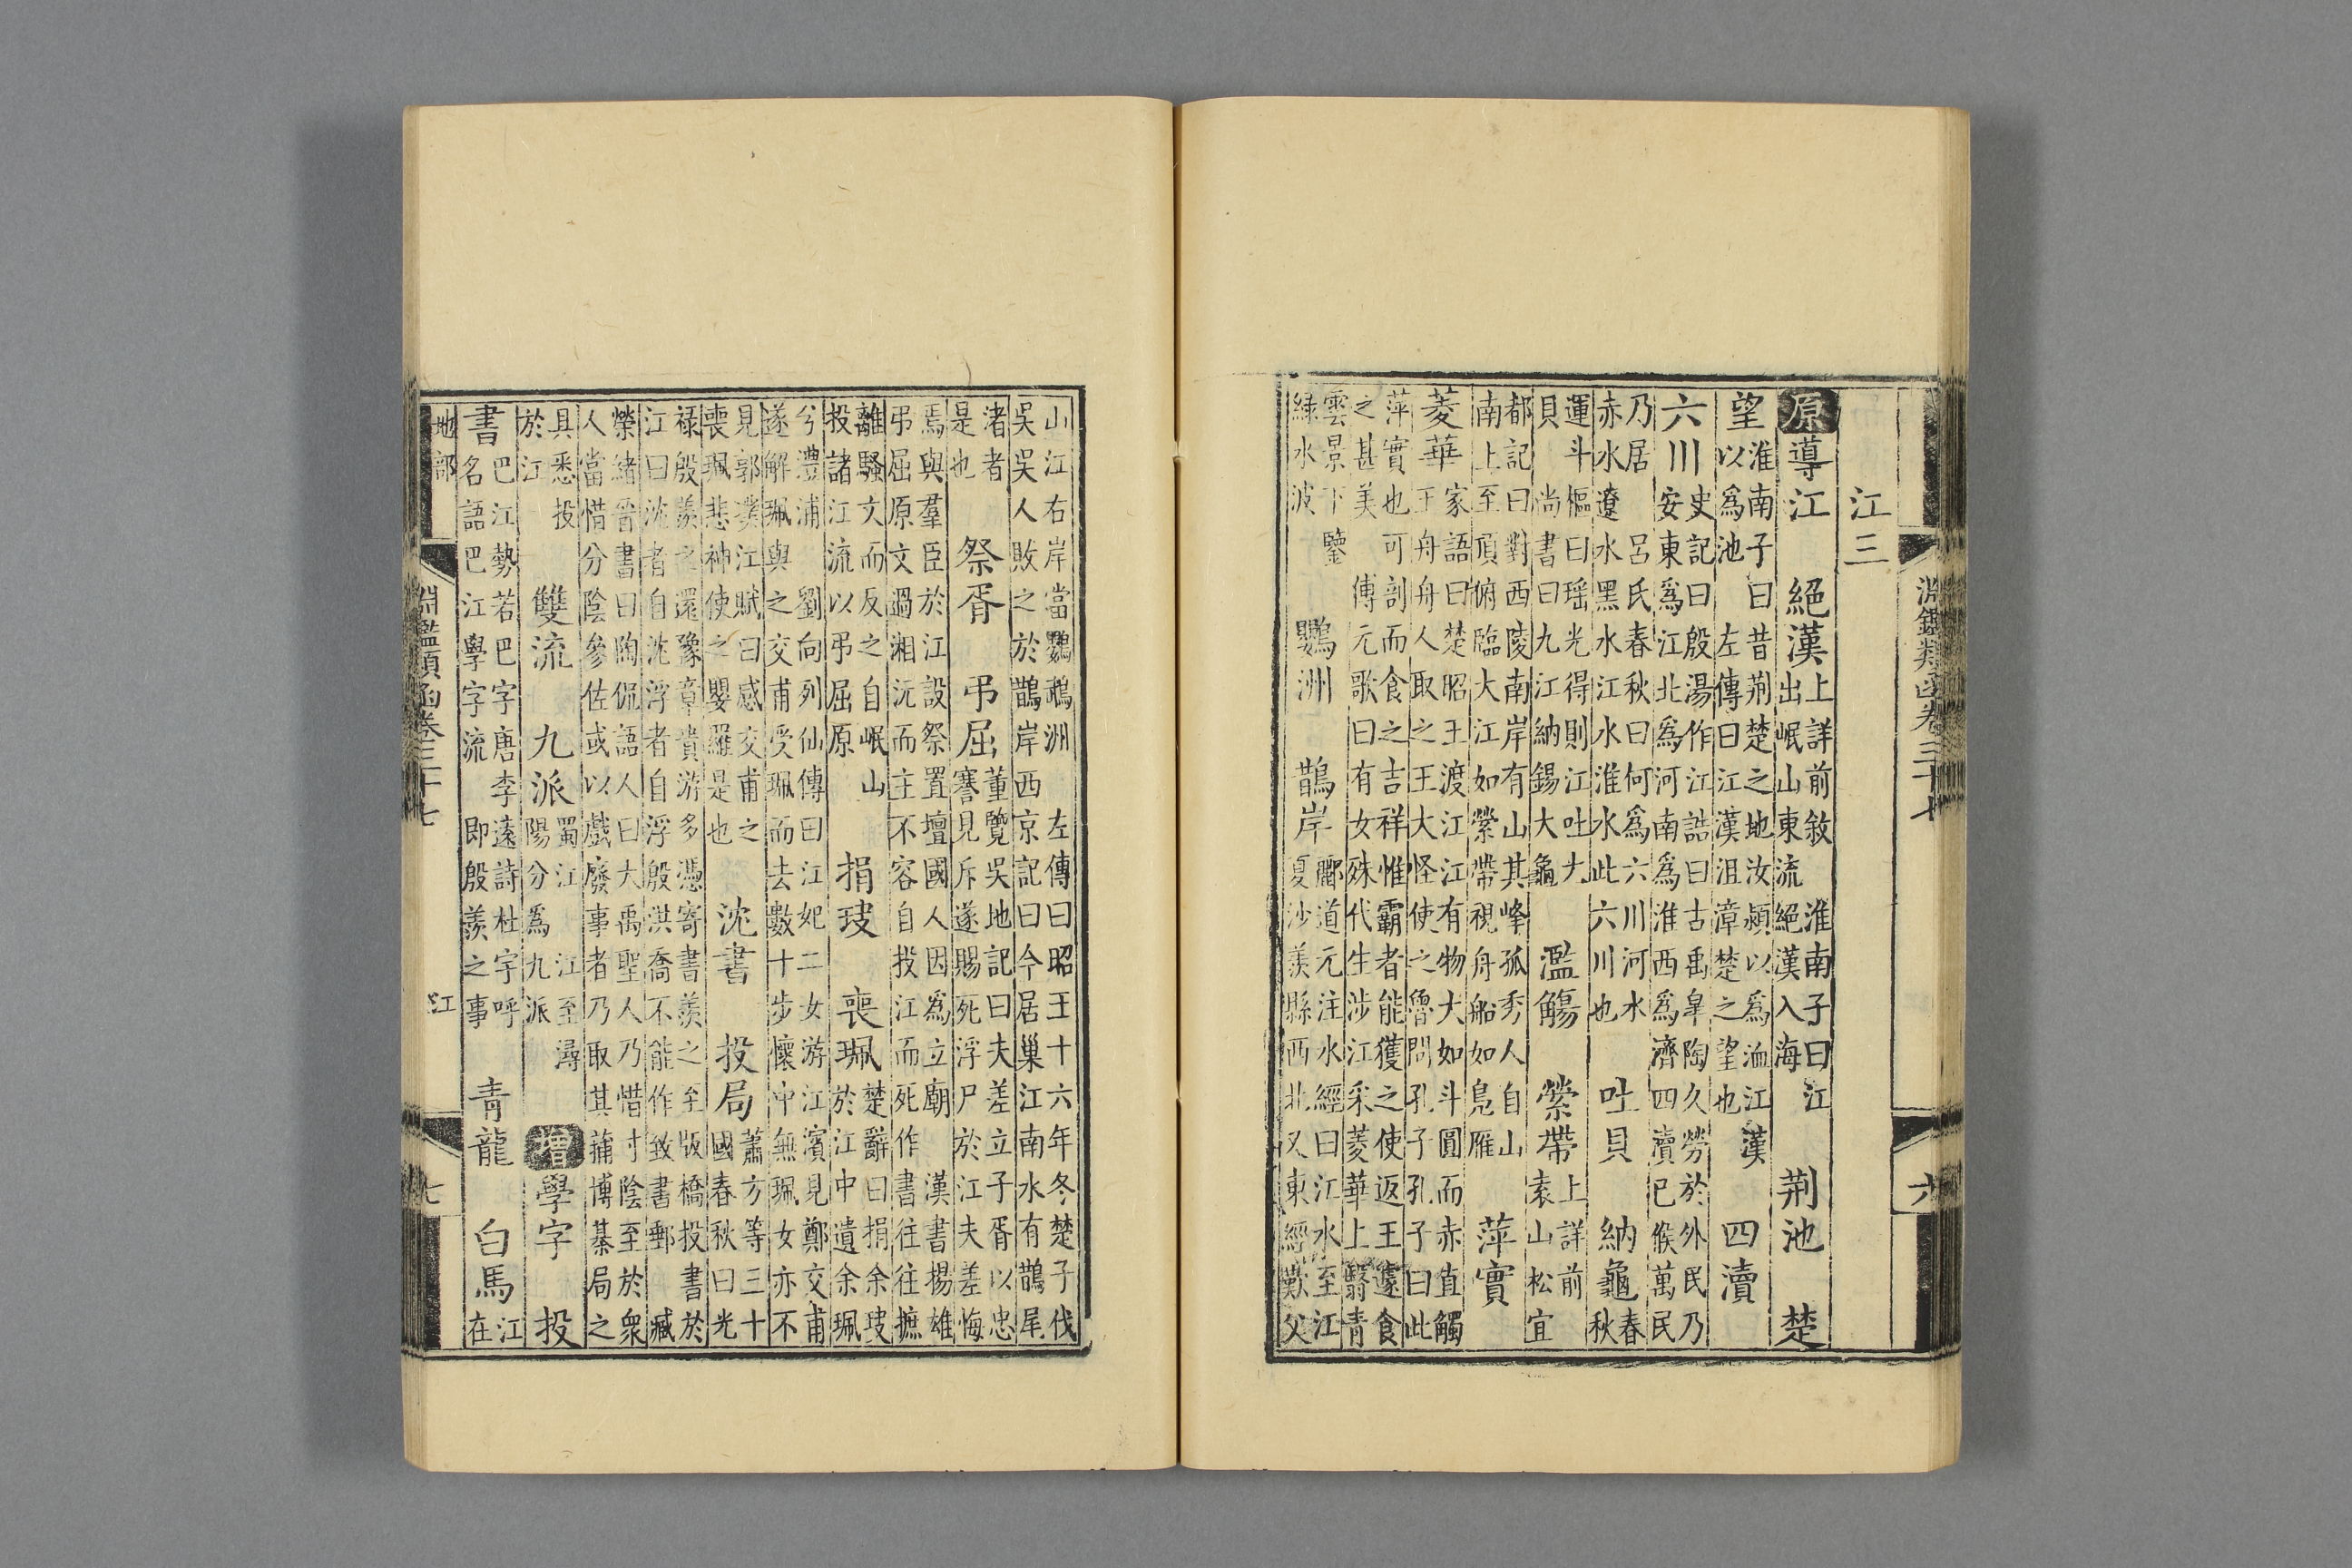 淵鑑類函卷三十七 六
江三
原導江 絕漢上詳前敘 淮南子曰江出岷山東流絕漢入海 荆池 楚
望淮南子曰昔荆楚之地汝潁以爲洫江漢以爲池 左傳曰江漢沮漳楚之望也 四瀆
六川史記曰殷湯作江誥曰古禹皐陶久勞於外民乃安東爲江北爲河南爲淮西爲濟四瀆已候萬民
乃居 呂氏春秋曰何爲六川河水赤水遼水黑水江水淮水此六川也 吐貝 納龜春秋
運斗樞曰瑶光得則江吐大貝 尚書曰九江納錫大龜 濫觴 縈帶上詳前 袁山松宜
都記曰對西陵南岸有山其峰孤秀人自山南上至頂俯臨大江如縈帶視舟船如鳧雁 萍實
菱華家語曰楚昭王渡江江有物大如斗圓而赤直觸王舟舟人取之王大怪使之魯問孔子孔子曰此
萍實也可剖而食之吉祥惟霸者能獲之使返王遂食之甚美 傳元歌曰有女殊代生涉江采菱華上翳青
雲景下鑒綠水波 鸚洲 鵲岸酈道元注水經曰江水至江夏沙羨縣西北又東經歎父
山江右岸當鸚鵡洲 左傳曰昭王十六年冬楚子伐吳吳人敗之於鵲岸西京記曰今居巢江南水有鵲尾
渚者是也 祭胥 弔屈董覽吳地記曰夫差立子胥以忠謇見斥遂賜死浮尸於江夫差悔
焉與羣臣於江設祭置壇國人因爲立廟 漢書揚雄弔屈原文過湘沅而主不容自投江而死作書往往摭
離騷文而反之自岷山投諸江流以弔屈原 捐玦 喪珮楚辭曰捐余玦於江中遺余珮
兮澧浦 劉向列仙傳曰江妃二女游江濱見鄭交甫遂解珮與之交甫受珮而去數十步懷中無珮女亦不
見郭璞江賦曰感交甫之喪珮悲神使之嬰羅是也 沈書 投局蕭方等三十國春秋曰光
禄殷羨之還豫章貴游多憑寄書羨之至版橋投書於江曰沈者自沈浮者自浮殷洪喬不能作致書郵 臧
榮緒晉書曰陶侃語人曰大禹聖人乃惜寸陰至於衆人當惜分陰參佐或以戲廢事者乃取其蒱博棊局之
具悉投於江 雙流 九派蜀江 江至潯陽分爲九派 增學字 投
書巴江勢若巴字唐李遠詩杜宇呼名語巴江學字流 即殷羨之事 青龍 白馬江在
地部 淵鑑類函卷三十七 江 七